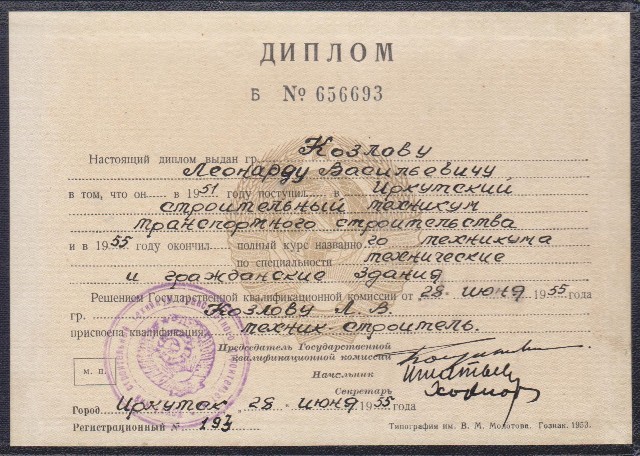 ДИПЛОМ
Б № 656693
Настоящий диплом выдан гр. Козлову
Леонарду Васильевичу
в том, что он в 1951 году поступил в Иркутский
строительный техникум
транспортного строительства
и в 1955 году окончил полный курс названного техникума
по специальности технические
и гражданские здания
Решением Государственной квалификационной комиссии от 28 июня 1955 года
гр. Козлову Л. В.
присвоена квалификация техник-строитель.
Председатель Государственной
квалификационной комиссии
м. п.
Начальник
Секретарь
Город Иркутск, 28 июня 1955 года
Регистрационный № 193
Типография им. В. М. Молотова. Гознак. 1953.